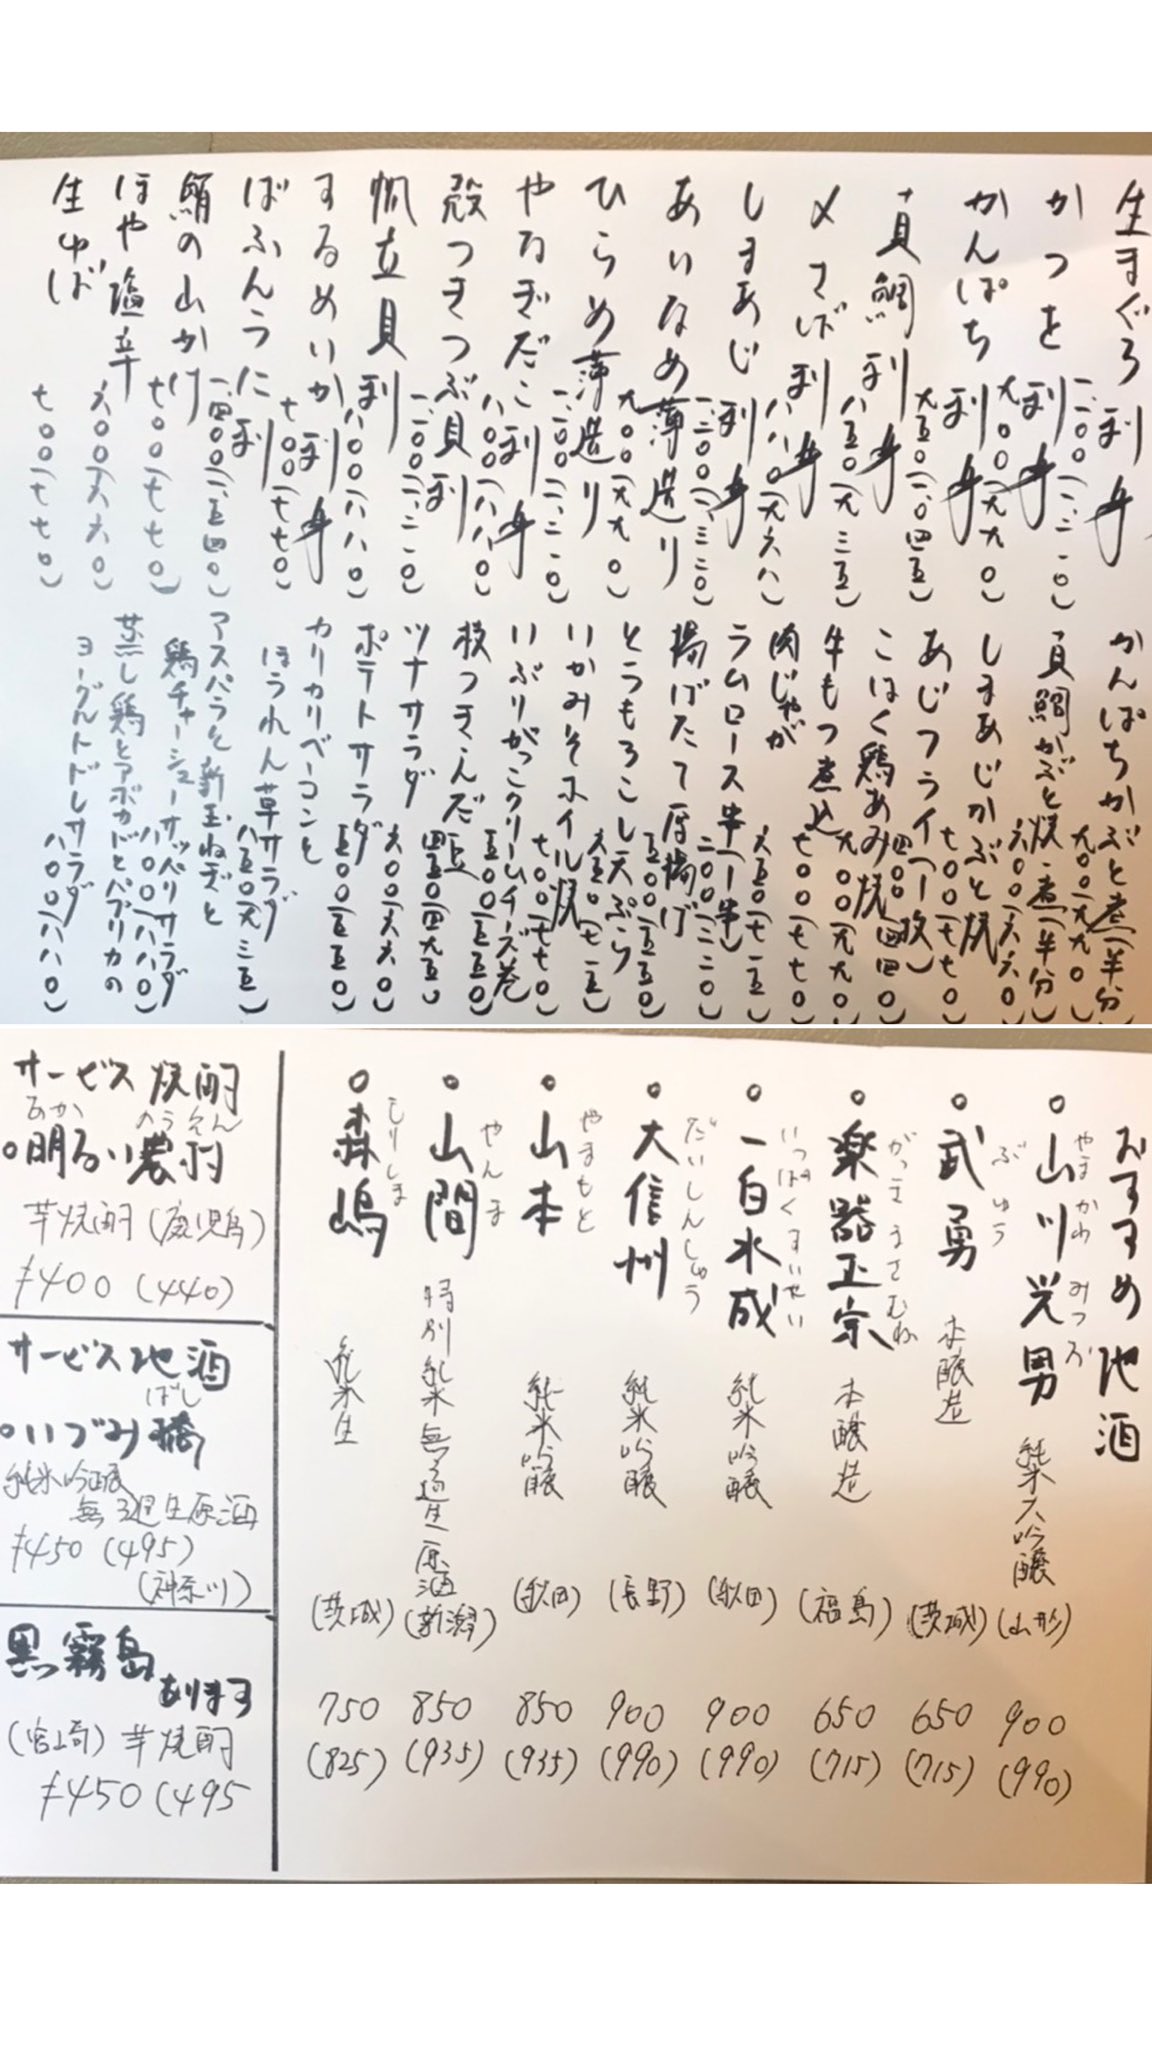 生まぐろ刺身 一、一〇〇(一、二一〇)
かつを刺身 九〇〇(九九〇)
かんぱち刺身 九五〇(一、〇四五)
真鯛刺身 八五〇(九三五)
〆さば刺身 八八〇(九六八)
しまあじ刺身 一、二〇〇(一、三二〇)
あいなめ薄造り 九〇〇(九九〇)
ひらめ薄造り 一、一〇〇(一、二一〇)
やなぎだこ刺身 八〇〇(八八〇)
殻つきつぶ貝刺 一、一〇〇(一、二一〇)
帆立貝刺 八〇〇(八八〇)
するめいか刺身 七〇〇(七七〇)
ばふんうに刺 一、四〇〇(一、五四〇)
鮪の山かけ 七〇〇(七七〇)
ほや塩辛 六〇〇(六六〇)
生ゆば 七〇〇(七七〇)
かんぱちかぶと煮(半分) 九〇〇(九九〇)
真鯛かぶと焼・煮(半分) 六〇〇(六六〇)
しまあじかぶと焼 七〇〇(七七〇)
あじフライ(一枚) 四〇〇(四四〇)
こはく鶏あみ焼 九〇〇(九九〇)
牛もつ煮込 七〇〇(七七〇)
肉じゃが 六五〇(七一五)
ラムロース串(一串) 二〇〇(二二〇)
揚げたて厚揚げ 五〇〇(五五〇)
とうもろこし天ぷら 六五〇(七一五)
いかみそホイル焼 七〇〇(七七〇)
いぶりがっこクリームチーズ巻 五〇〇(五五〇)
枝つきえんだ豆 四五〇(四九五)
ツナサラダ 六〇〇(六六〇)
ポテトサラダ 五〇〇(五五〇)
カリカリベーコンと
ほうれん草サラダ 八五〇(九三五)
アスパラと新玉ねぎと
鶏チャーシューサッパリサラダ 八〇〇(八八〇)
蒸し鶏とアボカドとパプリカの
ヨーグルトドレサラダ 八〇〇(八八〇)
おすすめ地酒
○山川光男 やまかわみつお 純米大吟醸 (山形) 900 (990)
○武勇 ぶゆう 本醸造 (茨城) 650 (715)
○楽器正宗 がっきまさむね 本醸造 (福島) 650 (715)
○一白水成 いっぱくすいせい 純米吟醸 (秋田) 900 (990)
○大信州 だいしんしゅう 純米吟醸 (長野) 900 (990)
○山本 やまもと 純米吟醸 (秋田) 850 (935)
○山間 やんま 特別純米無ろ過生原酒 (新潟) 850 (935)
○森嶋 もりしま 純米生 (茨城) 750 (825)
サービス焼酎
○明るい農村 あか のうそん
芋焼酎(鹿児島)
¥400 (440)
サービス地酒
○いづみ橋 ばし
純米吟醸
無ろ過生原酒
¥450 (495)
(神奈川)
黒霧島
あります
(宮崎) 芋焼酎
¥450 (495